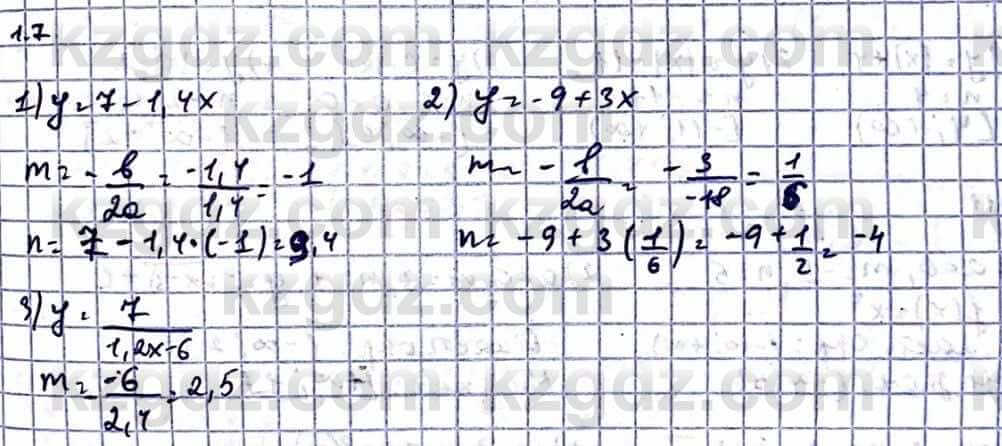 1.7
1) y = 7 - 1,4x 2) y = -9 + 3x
m = - b/2a = -1,4/1,4 = -1 m = - b/2a = - 3/-18 = 1/6
n = 7 - 1,4·(-1) = 9,4 n = -9 + 3(1/6) = -9 + 1/2 = -4
3) y = 7/1,2x-6
m = -6/2,4 = 2,5
kzgdz.com kzgdz.com kzgdz.com
kzgdz.com kzgdz.com
kzgdz.com kzgdz.com kzgdz.com
kzgdz.com kzgdz.com
kzgdz.com kzgdz.com kzgdz.com